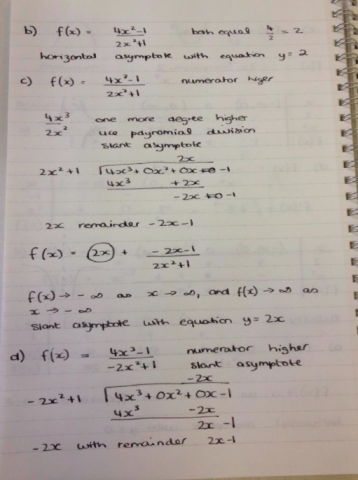 b) f(x) = 4x²-1 / 2x²+1 both equal 4/2 = 2
horizontal asymptote with equation y = 2
c) f(x) = 4x³-1 / 2x²+1 numerator higer
4x³ / 2x² one more degree higher
use paynomial division
slant asymptote
2x
2x²+1 4x³+0x²+0x-1
4x³ +2x
-2x+0-1
2x remainder -2x-1
f(x) = 2x + -2x-1 / 2x²+1
f(x) → -∞ as x → ∞, and f(x) → ∞ as
x → -∞
slant asymptote with equation y = 2x
d) f(x) = 4x³-1 / -2x²+1 numerator higher
slant asymptote
-2x
-2x²+1 4x³+0x²+0x-1
4x³ -2x
2x -1
-2x with remainder 2x-1